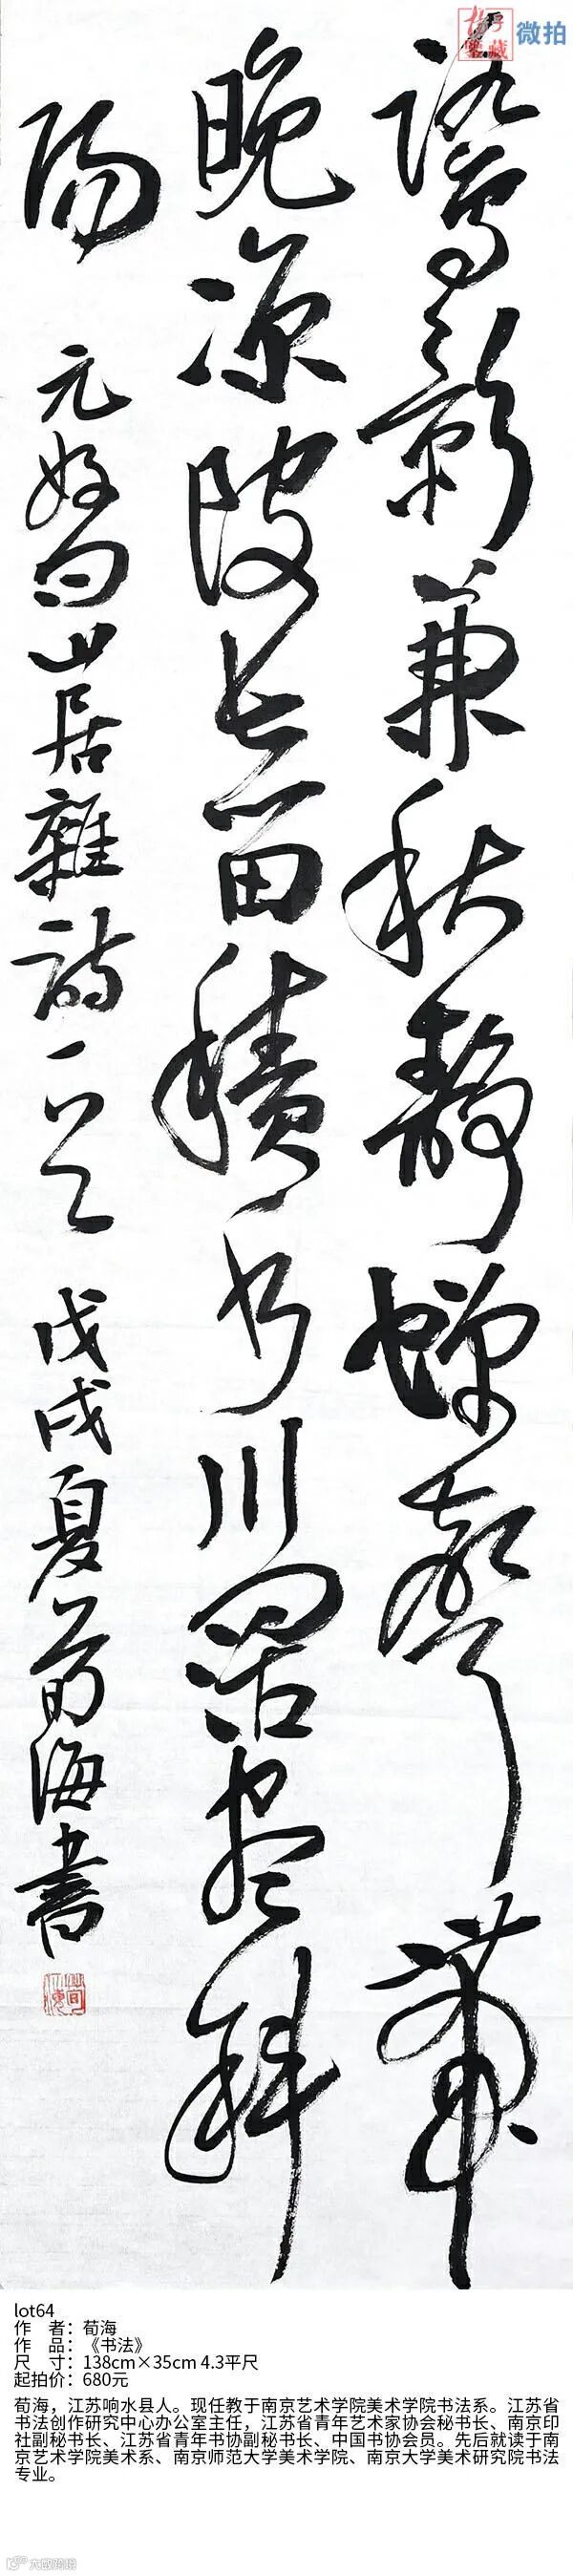 微拍
鷺影兼秋靜蟬聲帶
晚凉陂長留積水川闊盡斜
陽 元好问山居雜詩一首 戊戌夏荀海書
lot64
作 者：荀海
作 品：《书法》
尺 寸：138cm×35cm 4.3平尺
起拍价：680元
荀海，江苏响水县人。现任教于南京艺术学院美术学院书法系。江苏省
书法创作研究中心办公室主任，江苏省青年艺术家协会秘书长、南京印
社副秘书长、江苏省青年书协副秘书长、中国书协会员。先后就读于南
京艺术学院美术系、南京师范大学美术学院、南京大学美术研究院书法
专业。